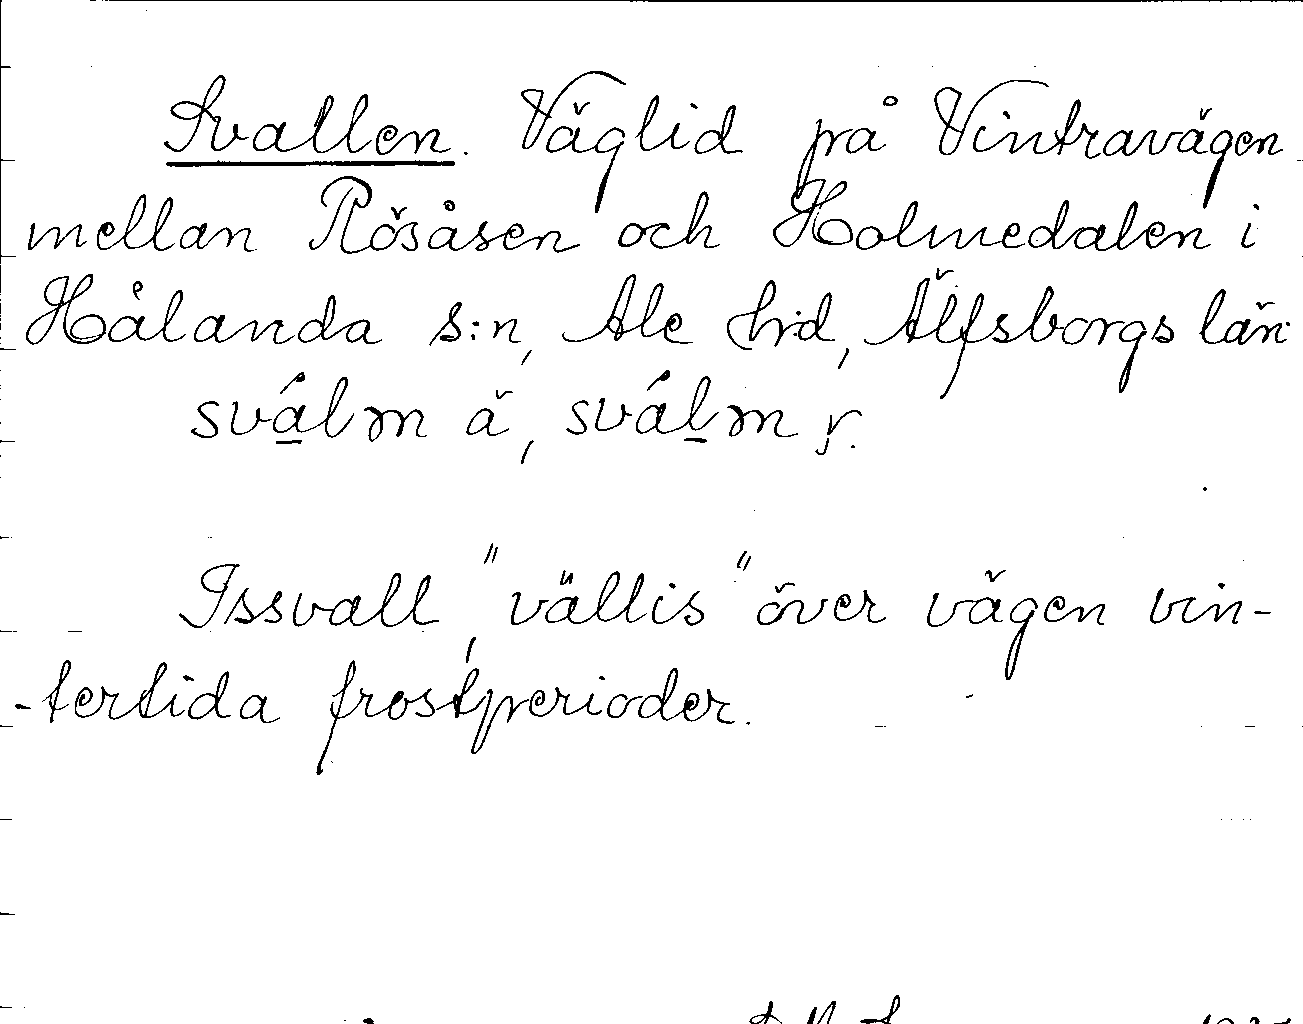 Svallen. Väglid på Vintravägen
mellan Rösåsen och Holmedalen i
Hålanda s:n, Ale hrd, Älfsborgs län
sválm ä, sválm r.
Issvall, "vällis" över vägen vin-
-tertida frostperioder.